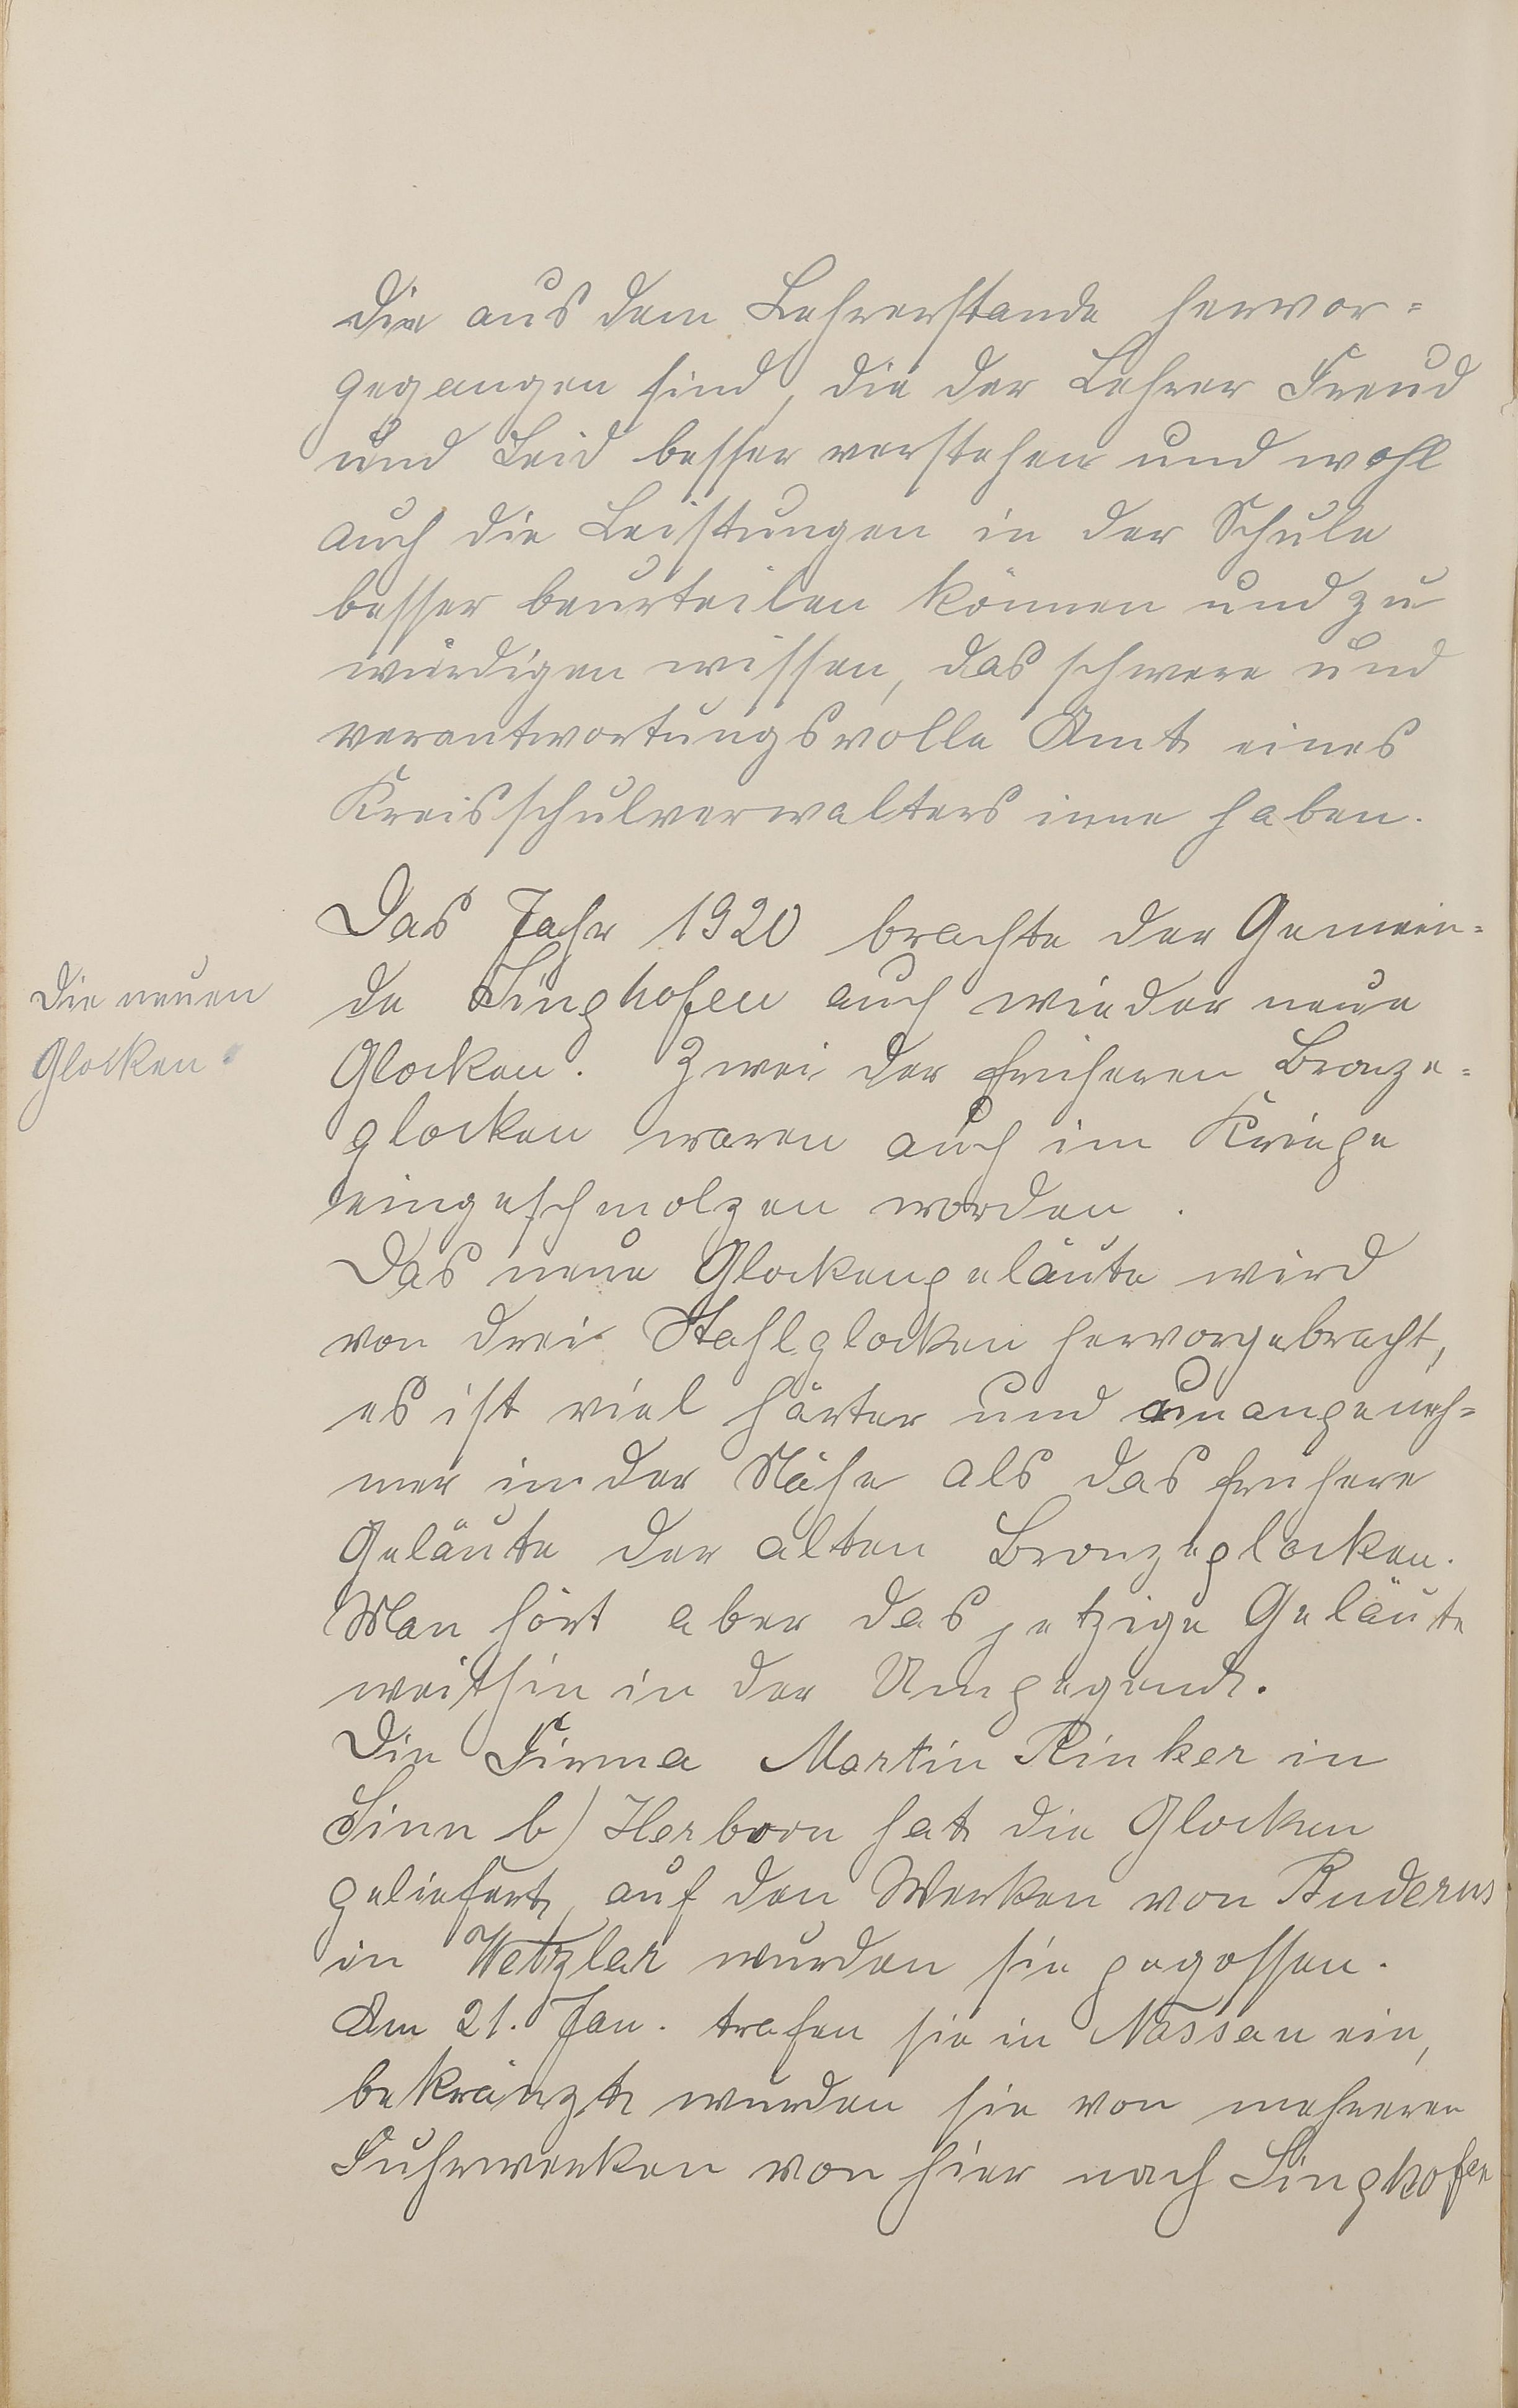 die aus dem Lehrerstande hervor=
gegangen sind, die der Lehrer Freud
und Leid besser verstehen und wohl
auch die Leistungen in der Schule
besser beurteilen können und zu
würdigen wissen, das schwere und
verantwortungsvolle Amt eines
Kreisschulverwalters inne haben.
Das Jahr 1920 brachte der Gemein=
Die neuen
Glocken.
de Singhofen auch wieder neue
Glocken. Zwei der früheren Bronze=
glocken waren auch im Kriege
eingeschmolzen worden.
Das neue Glockengeläute wird
von drei Stahlglocken hervorgebracht,
es ist viel härter und unangeneh=
mer in der Nähe als das frühere
Geläute der alten Bronzeglocken.
Man hört aber das jetzige Geläute
weithin in der Umgegend.
Die Firma Martin Rinker in
Sinn b) Herborn hat die Glocken
geliefert, auf den Werken von Buderus
in Wetzlar wurden sie gegossen.
Am 21. Jan. trafen sie in Nassau ein,
bekränzt wurden sie von mehreren
Fuhrwerken von hier nach Singhofen